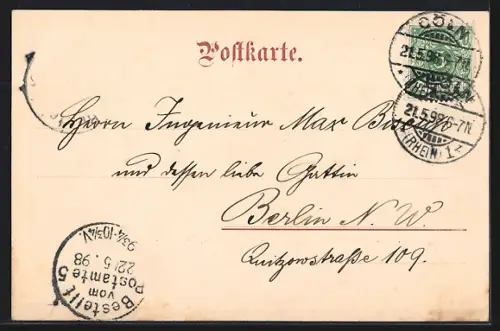 Postkarte.
CÖLN
21.5.98 6-7N
(RHEIN) 1
21.5.98 6-7N
(RHEIN) 1
Herrn Ingenieur Max
und dessen liebe Gattin
Berlin N.W.
Quitzowstraße 109.
Bestellt
vom
Postamte 5
22.5.98
9¾-10¾V.